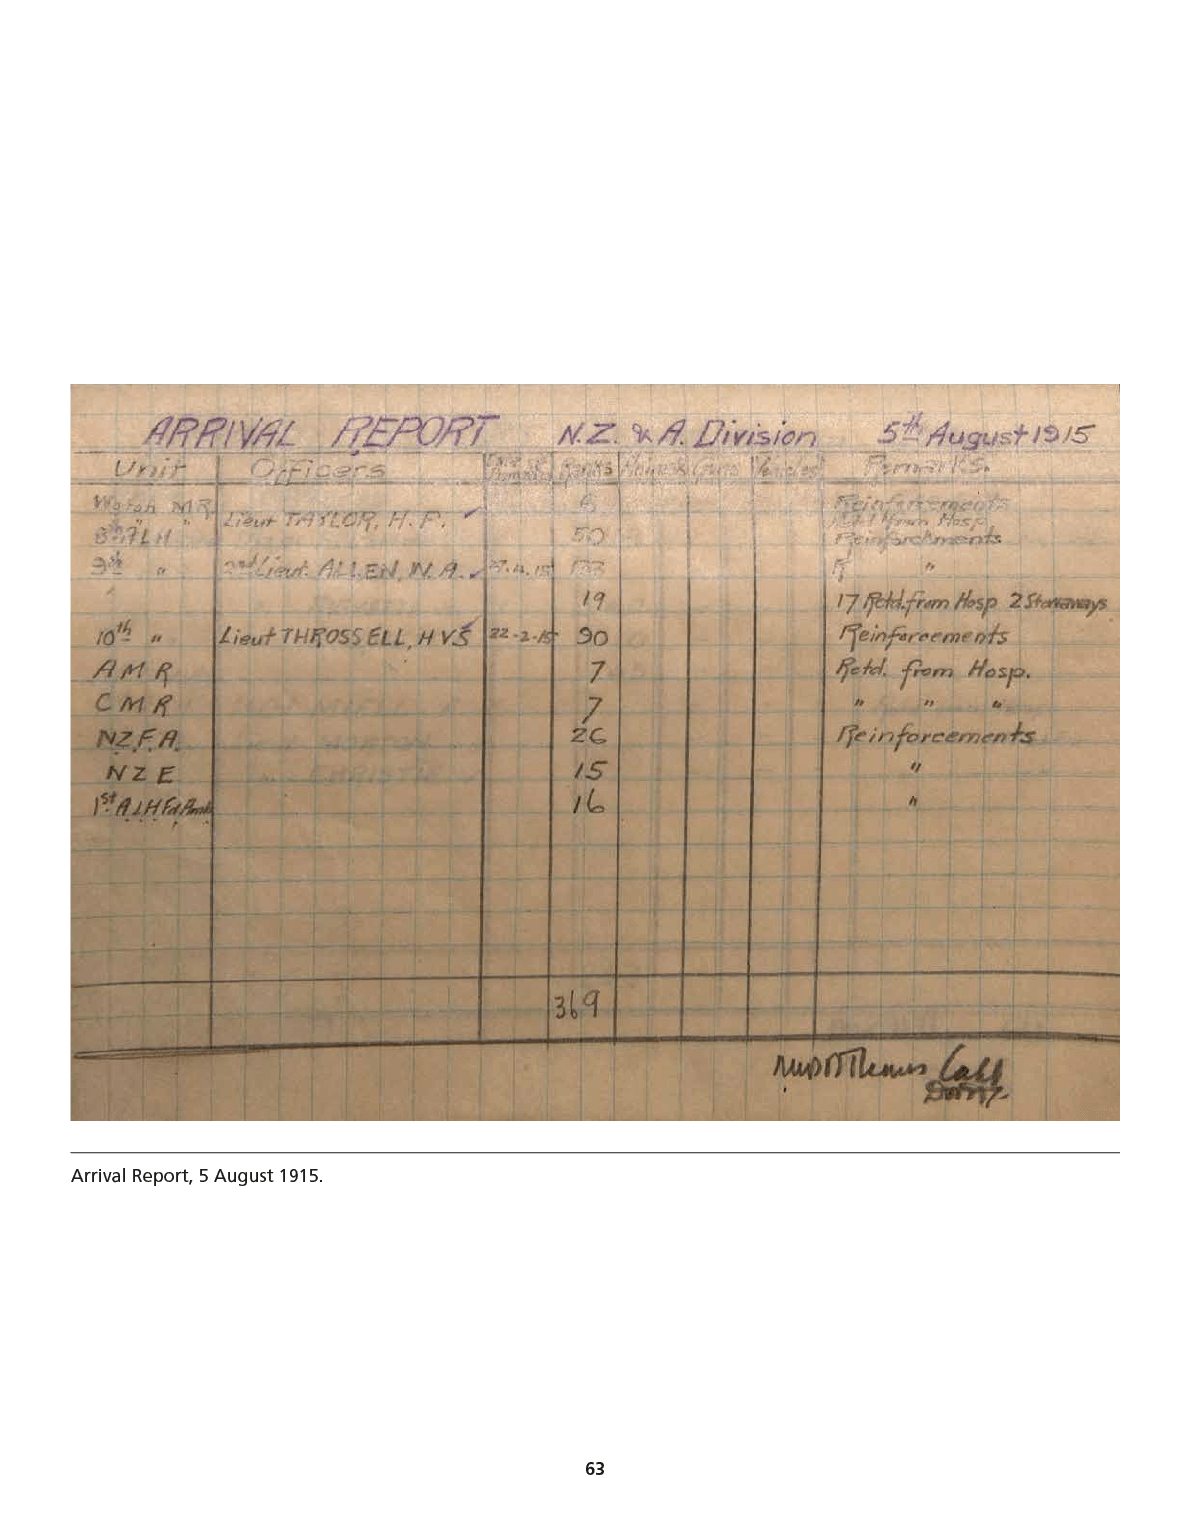 ARRIVAL REPORT N.Z. & A. Division 5th August 1915
Unit Officers Ranks Horses Guns Vehicles Remarks.
M.R. 6 Reinforcements
Lieut TAYLOR, H. P. Retd from Hosp
LH " 50 Reinforcements
9th " 2nd Lieut. ALLEN, W. A. 4.15 133 R "
19 17 Retd. from Hosp 2 Stowaways
10th " Lieut THROSSELL, H V S 22-2-15 90 Reinforcements
A M R 7 Retd. from Hosp.
C M R 7 " " "
N.Z.F.A. 26 Reinforcements
N Z E 15 "
1st A.L.H Fd. Amb. 16 "
369
Arrival Report, 5 August 1915.
63